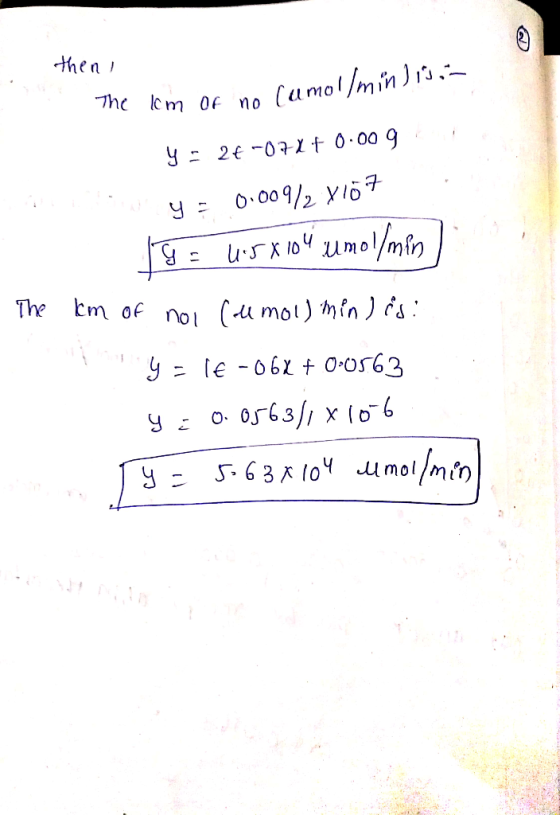 2
then,
The km of no (umol/min) is:-
y = 2E-07x + 0.009
y = 0.009/2 x 10^-7
y = 4.5 x 10^4 umol/min
The km of no1 (umol) min) is:
y = 1E-06x + 0.0563
y = 0.0563/1 x 10^-6
y = 5.63 x 10^4 umol/min